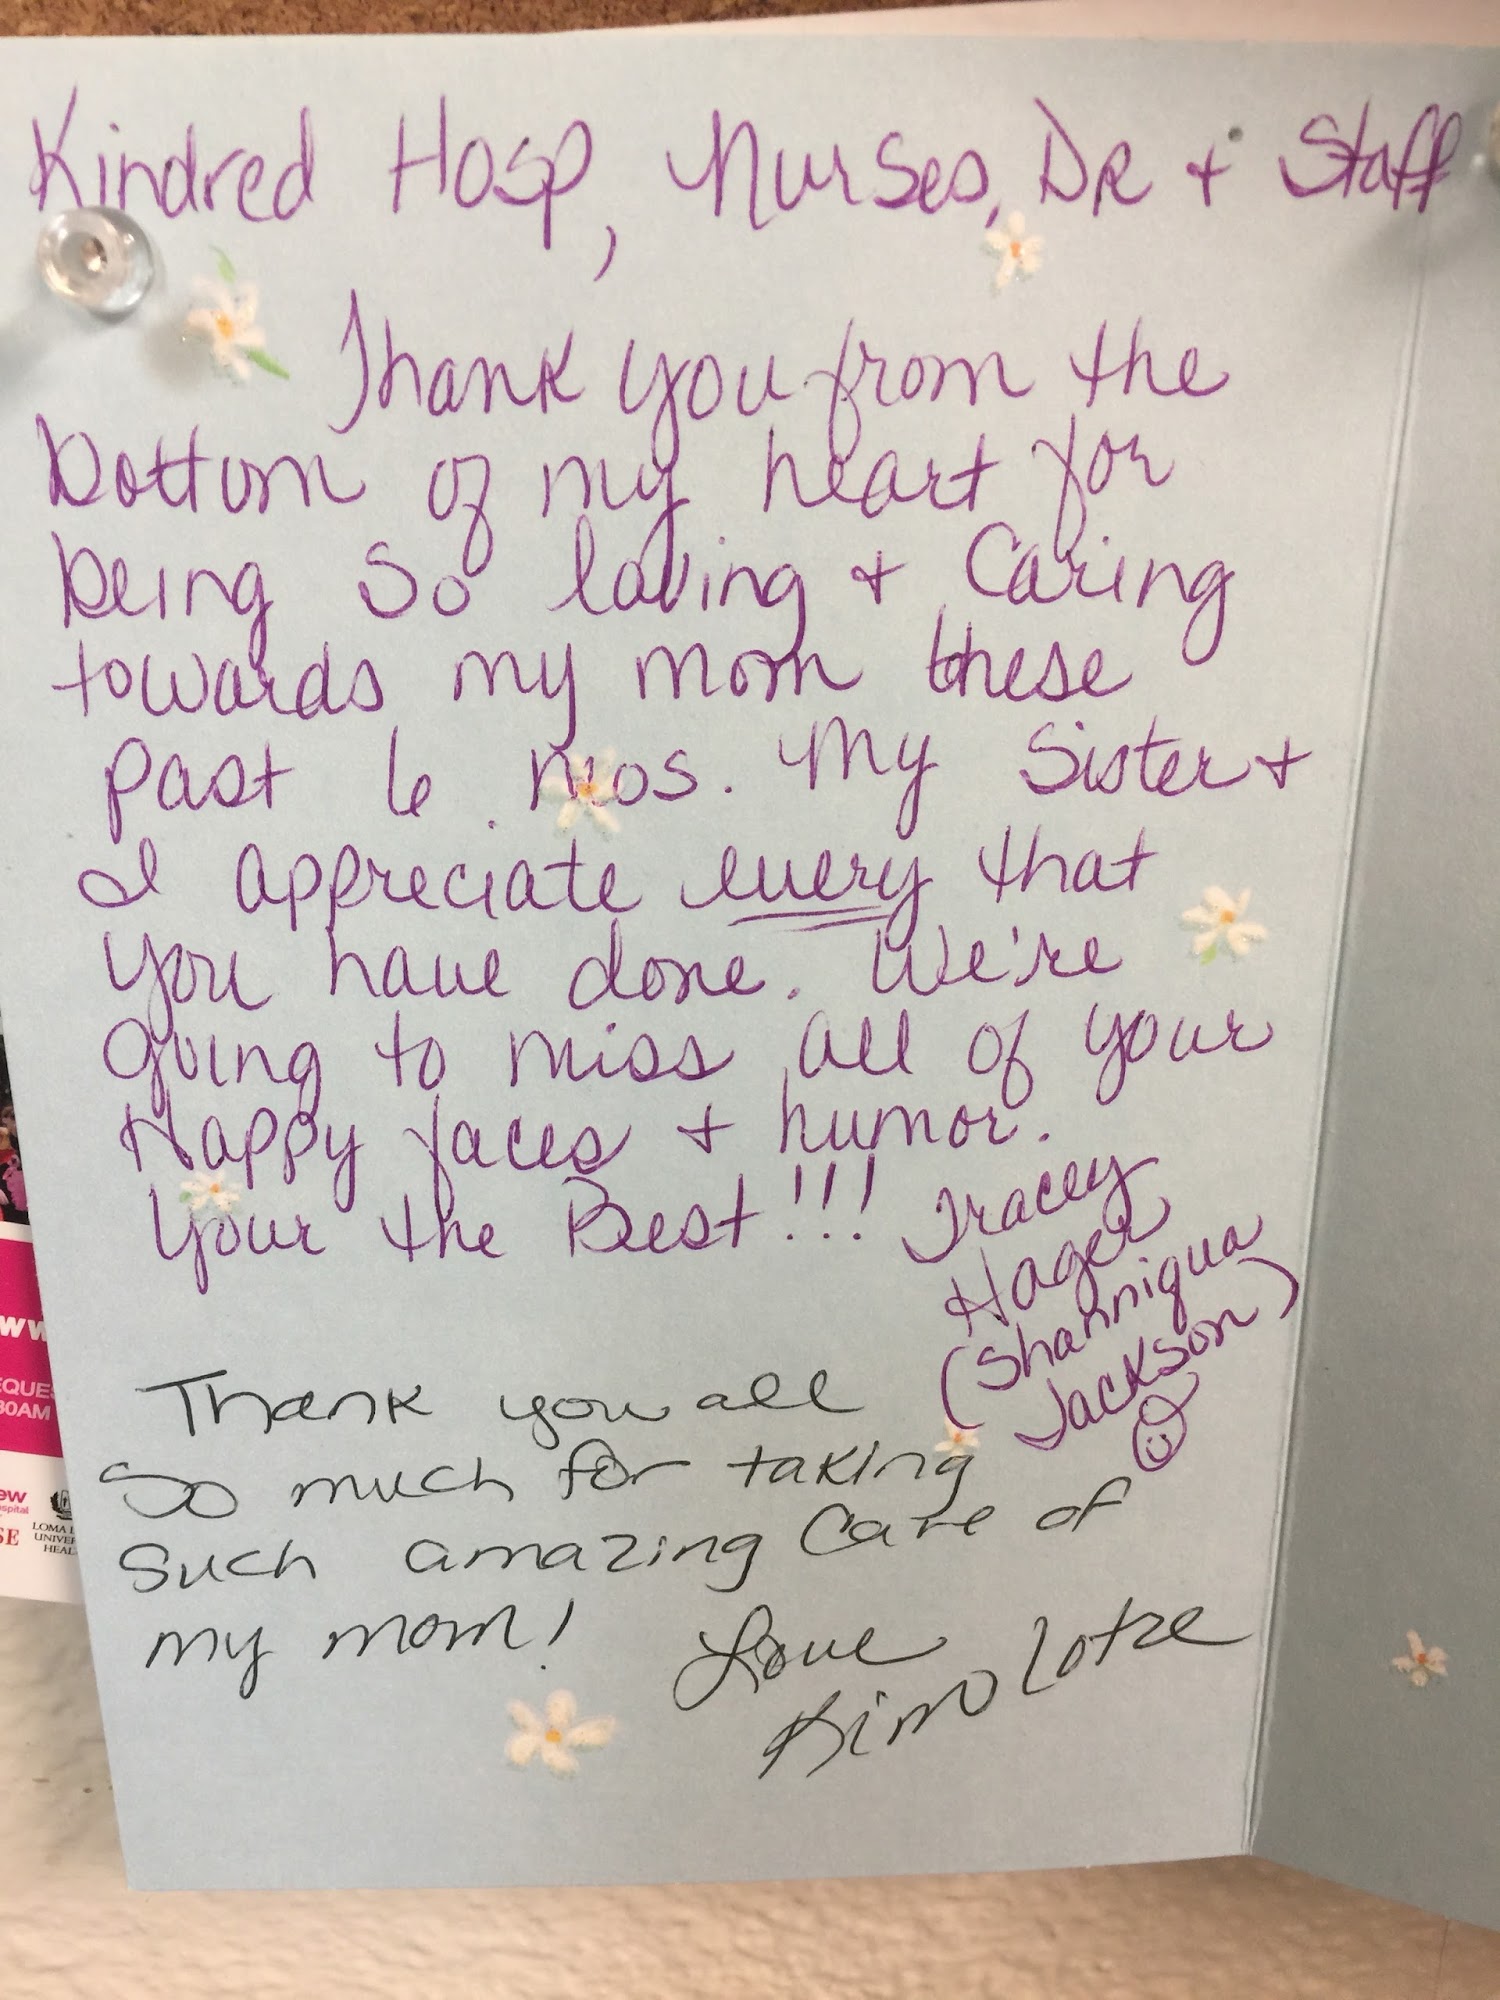 Kindred Hosp, Nurses, DR + Staff
Thank you from the
bottom of my heart for
being so loving + Caring
towards my mom these
past 6 mos. My Sister +
I appreciate every that
you have done. We're
going to miss all of your
Happy faces + humor.
Your the Best!!! Tracey
Hager
(Shanniqua
Jackson)
Thank you all
So much for taking
Such amazing Care of
my mom! Love
Kim Lotze
WW
EQUES
30AM
ew
spital
SE
LOMA L
UNIVER
HEAL